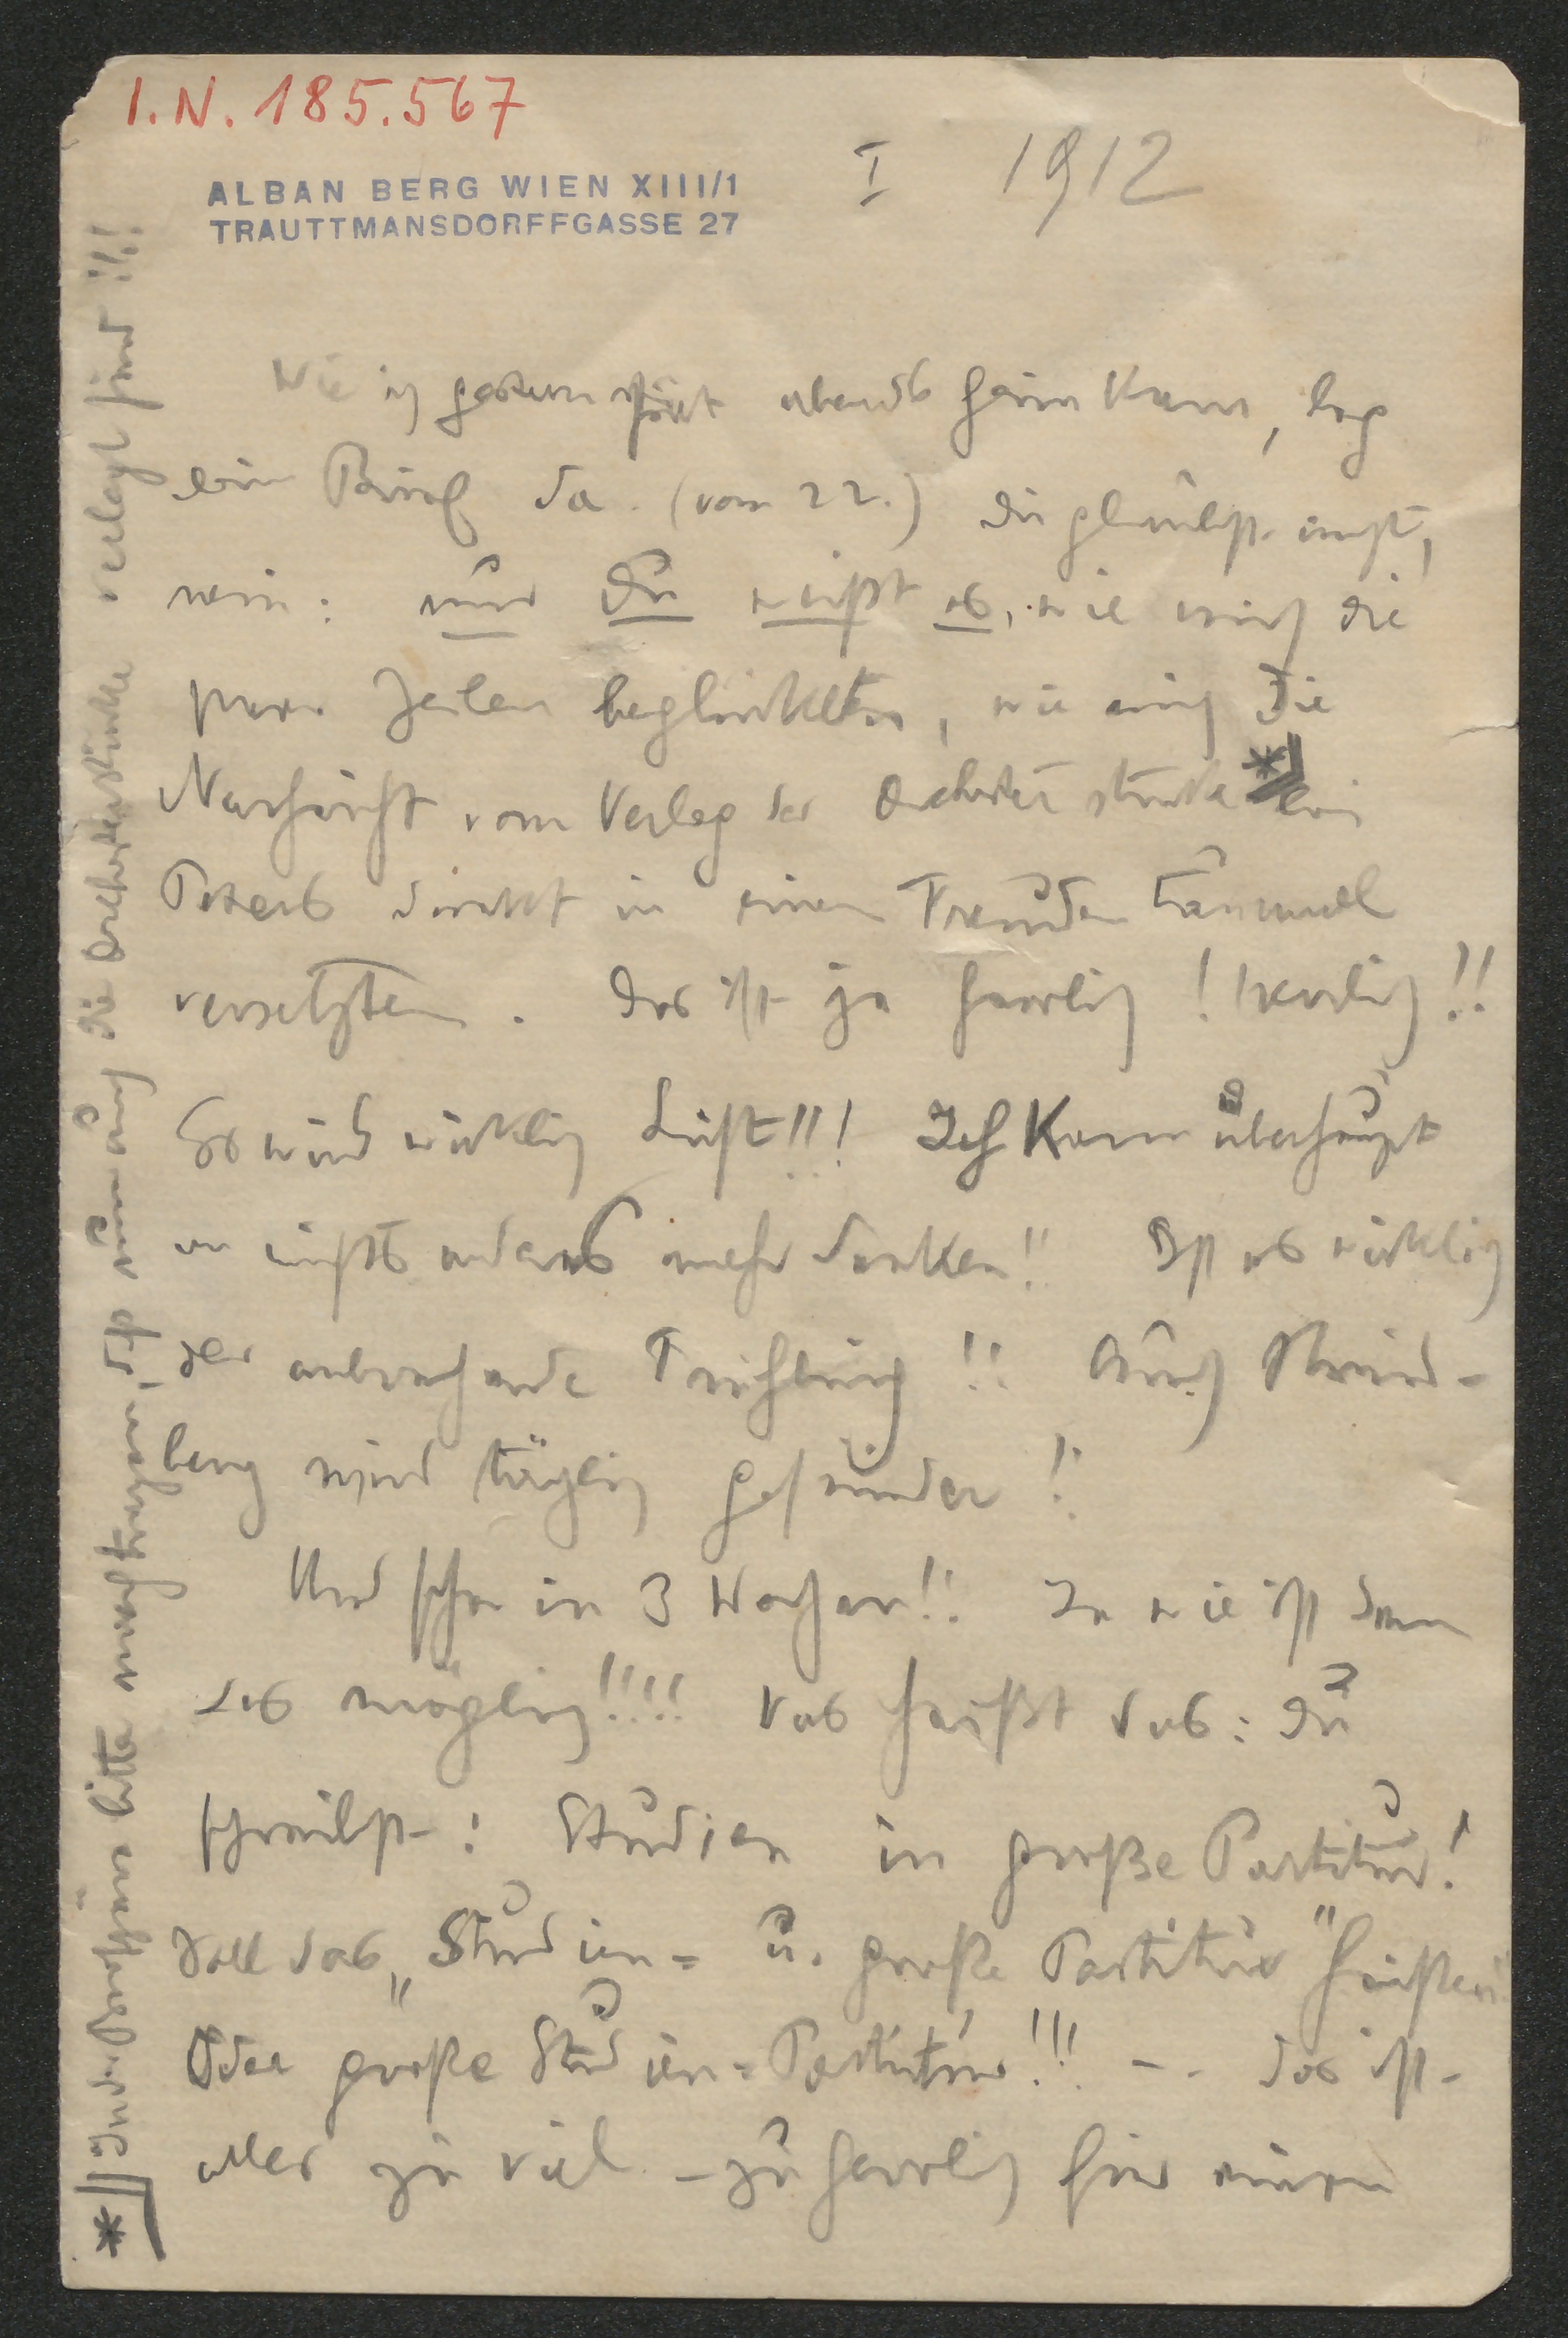 I.N. 185.567
I 1912
ALBAN BERG WIEN XIII/1
TRAUTTMANSDORFFGASSE 27
Wie ich gestern spät abends heim kam, lag
ein Brief da. (vom 22.) Du glaubst nicht,
nein: nur Du weißt es, wie mich die
paar Zeilen beglückten, wie mich die
Nachricht vom Verlag der Orchesterstücke *) bei
Peters direkt in einen Freudentaumel
versetzten. Das ist ja herrlich! herrlich!!
Es wird wirklich Luft!!! Ich kann überhaupt
an nichts anderes mehr denken!! Ist es wirklich
der anbrechende Frühling!! Auch Strind-
berg wird täglich gesünder!
Und schon in 3 Wochen!! Ja wie ist denn
das möglich!!!! Was heißt das: Du
schreibst: Studien in große Partitur!
Soll das „Studien- u. große Partitur" heißen
Oder große Studien-Partitur!!! -- das ist
aber zu viel - zu herrlich für einen
*) In die Broschüre bitte nachtragen, daß nun auch die Orchesterstücke verlegt sind!!!